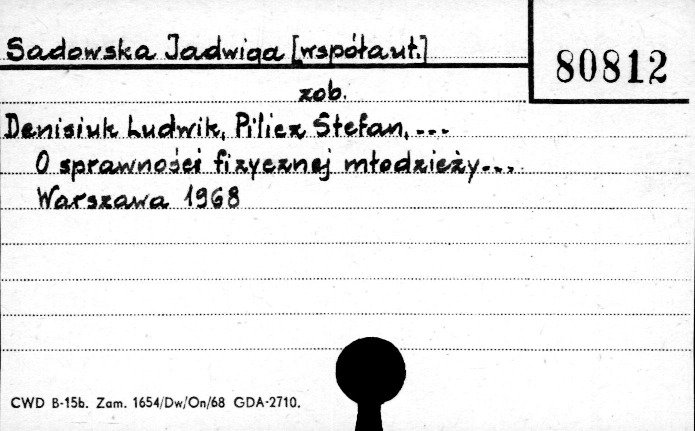 Sadowska Jadwiga [współaut.]
80812
zob.
Denisiuk Ludwik, Pilicz Stefan, ---
O sprawności fizycznej młodzieży...
Warszawa 1968
CWD B-15b. Zam. 1654/Dw/On/68 GDA-2710.